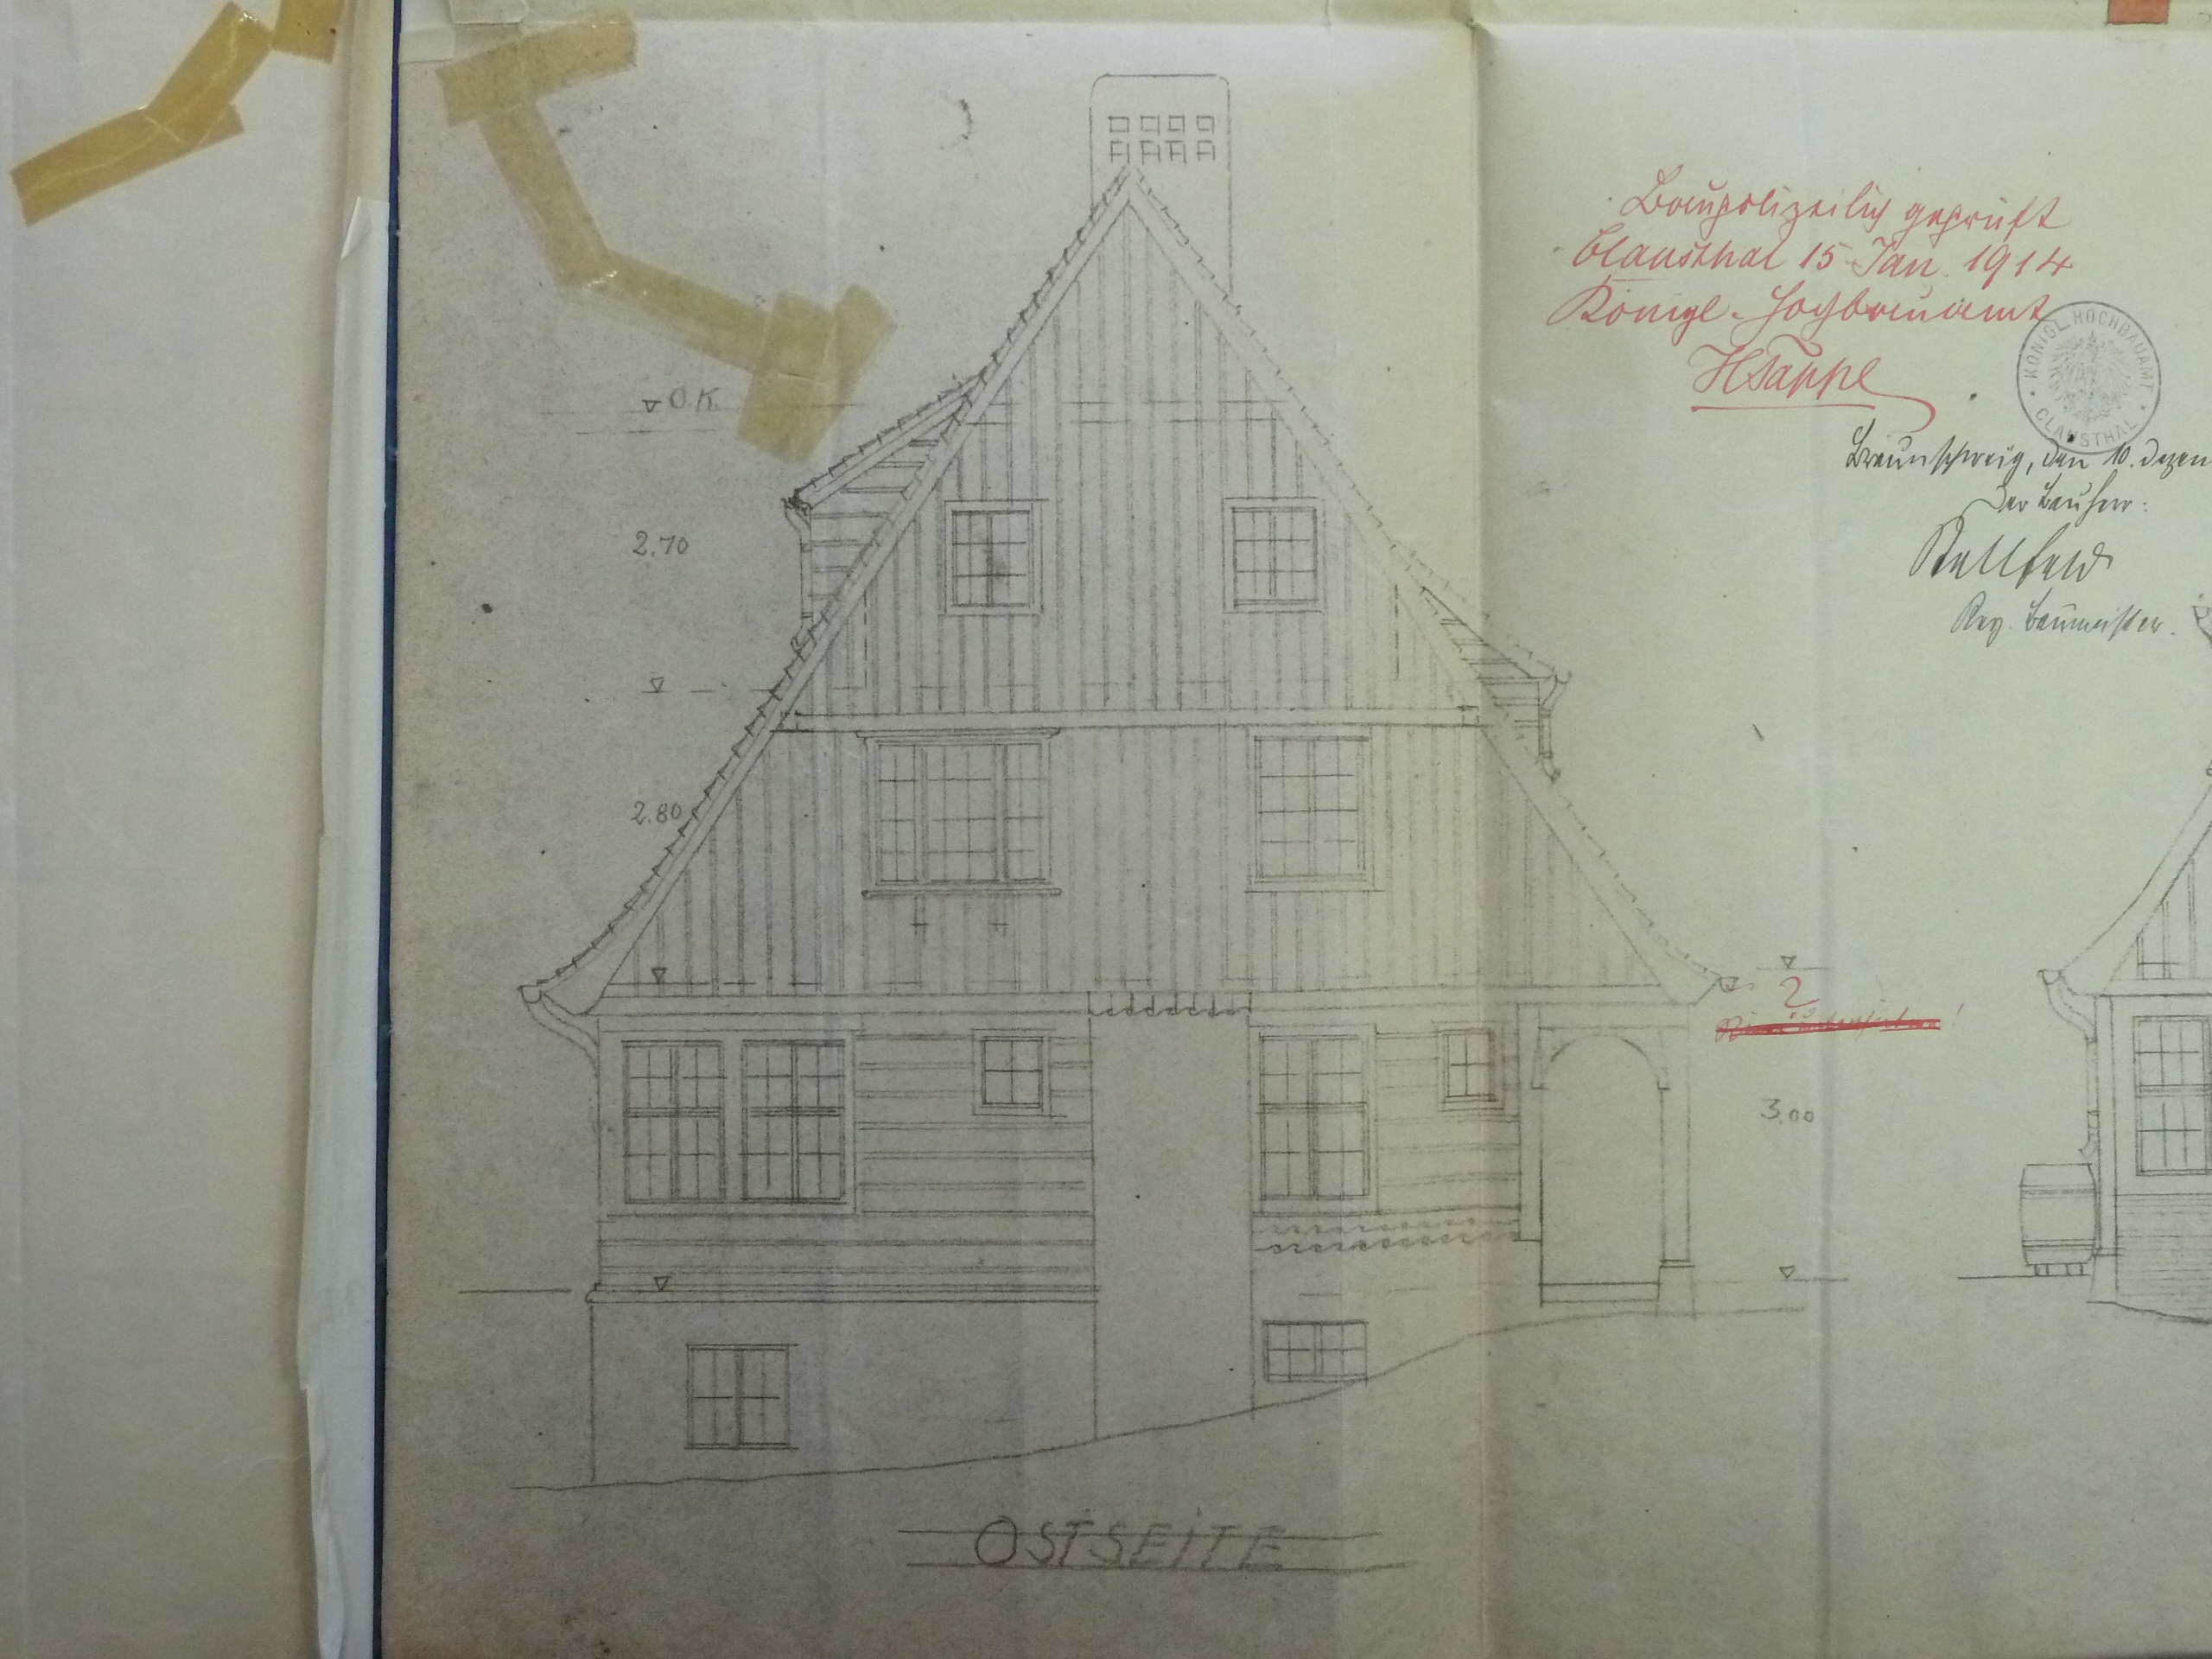 Baupolizeilich geprüft
Clausthal 15 Jan. 1914
Königl. Hochbauamt
HTappe
KÖNIGL. HOCHBAUAMT
* CLAUSTHAL *
Braunschweig, den 10. Dezem
Der Bauherr:
Reg. Baumeister.
O.K.
2.70
2.80
2
3,00
OSTSEITE